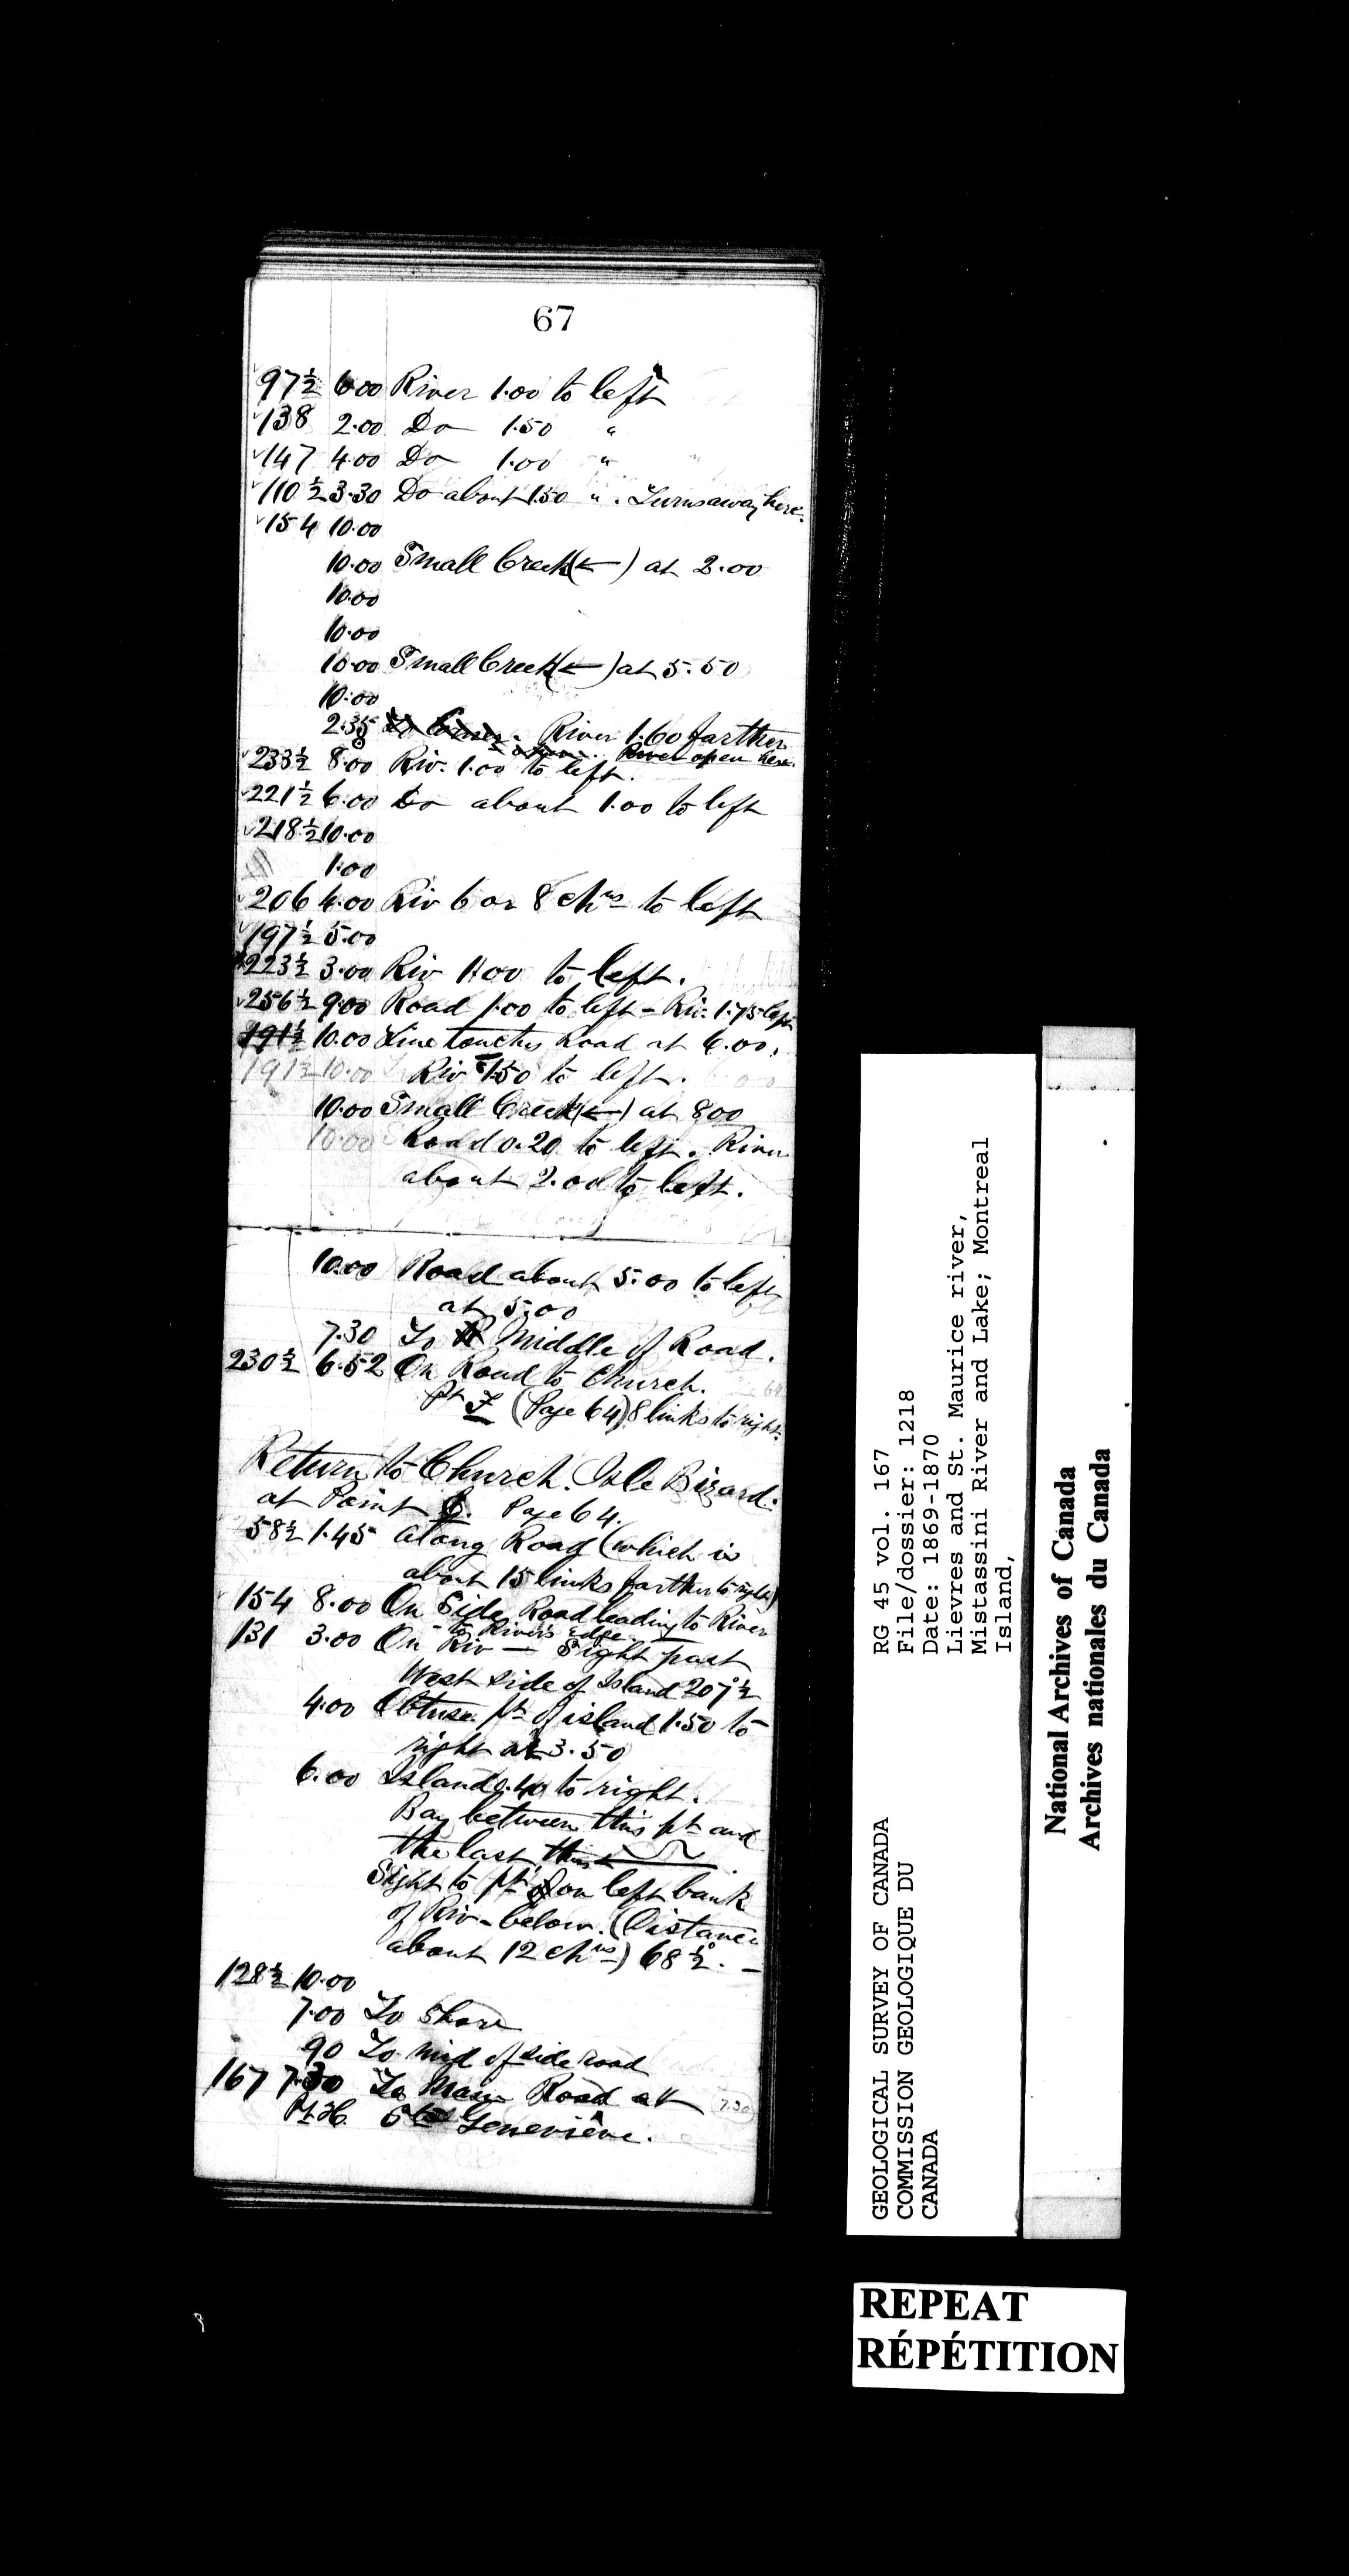 67
97½ 6.00 River 1.00 to left
138 2.00 Do 1.50 "
147 4.00 Do 1.00 "
110½ 3.30 Do about 1.50 " . Turns away here.
154 10.00
10.00 Small Creek (←) at 2.00
10.00
10.00
10.00 Small Creek (←) at 5.50
10.00
2.35 River 1.60 farther
River open here.
233½ 8.00 Riv. 1.00 to left.
221½ 6.00 Do about 1.00 to left
218½ 10.00
1.00
206 4.00 Riv 6 or 8 chns to left
197½ 5.00
223½ 3.00 Riv 1.00 to left.
256½ 9.00 Road 1.00 to left - Riv. 1.75 left
191½ 10.00 Line touches Road at 6.00.
191½ 10.00 Riv 1.50 to left.
10.00 Small Creek (←) at 800
10.00 Road 0.20 to left. River
about 2.00 to left.
10.00 Road about 5.00 to left
at 5.00
7.30 To Middle of Road.
230½ 6.52 On Road to Church.
Pt F (Page 64) 8 links to right.
Return to Church. Isle Bizard:
at Point Page 64.
58½ 1.45 along Road (which is
about 15 links farther to right)
154 8.00 On Side Road leading to River
to River's edge
131 3.00 On Riv — Sight past
West side of Island 207°½
4.00 Obtuse pt of island 1.50 to
right at 3.50
6.00 Island 0.40 to right.
Bay between this pt and
the last, thus
Sight to pt on left bank
of Riv. below. (Distance
about 12 chns) 68½°. —
128½ 10.00
7.00 To shore
90 To mid of side road
167 7.30 To Main Road at
Pt. H. Ste Geneviève.
7.30
GEOLOGICAL SURVEY OF CANADA
COMMISSION GEOLOGIQUE DU
CANADA
RG 45 vol. 167
File/dossier: 1218
Date: 1869-1870
Lievres and St. Maurice river,
Mistassini River and Lake; Montreal
Island,
National Archives of Canada
Archives nationales du Canada
REPEAT
RÉPÉTITION